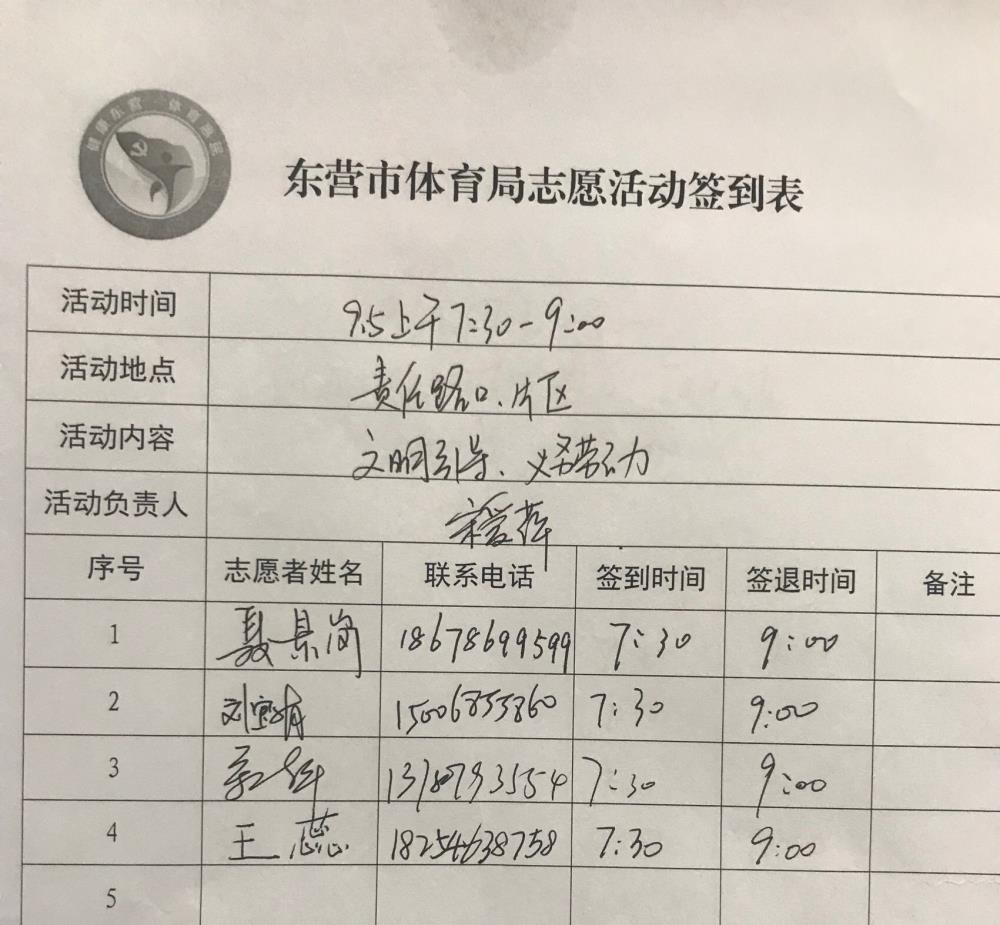 健康东营 体育惠民
东营市体育局志愿活动签到表
活动时间 9.5上午7:30-9:00
活动地点 责任路口、片区
活动内容 文明引导、义务劳动
活动负责人 宋爱萍
序号 志愿者姓名 联系电话 签到时间 签退时间 备注
1 聂景岗 18678699599 7:30 9:00
2 刘 15006853860 7:30 9:00
3 7:30 9:00
4 王蕊 18254638758 7:30 9:00
5